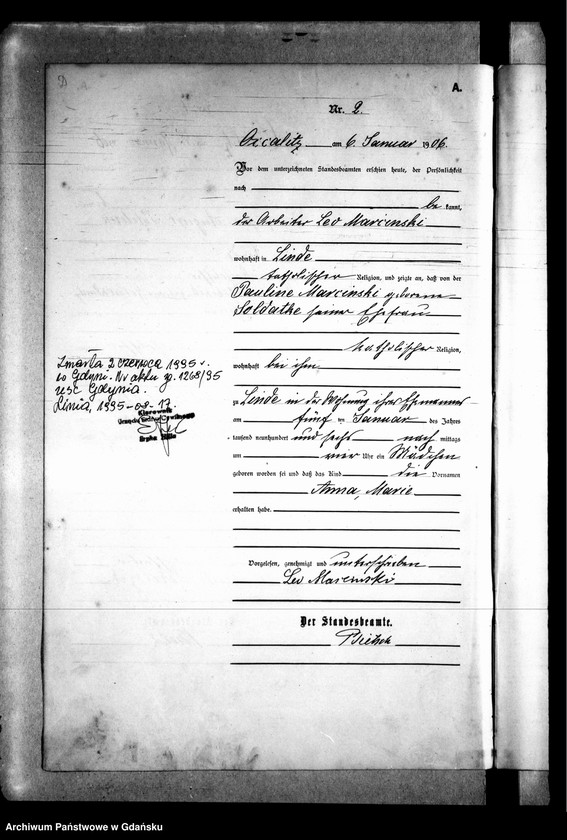 A.
Nr. 2.
am 6. Januar 1906.
Vor dem unterzeichneten Standesbeamten erschien heute, der Persönlichkeit
nach
be kannt,
der Arbeiter Leo Marcinski
wohnhaft in Linde
katholischer Religion, und zeigte an, daß von der
Pauline Marcinski geborene
Soldatke seiner Ehefrau
katholischer Religion,
wohnhaft bei ihm
zu Linde in der Wohnung ihres Ehemannes
am fünf ten Januar des Jahres
tausend neunhundert und sechs nach mittags
um vier Uhr ein Mädchen
geboren worden sei und daß das Kind die Vornamen
Anna, Marie
erhalten habe.
Vorgelesen, genehmigt und unterschrieben
Leo Marcinski
Der Standesbeamte.
Zmarła 2 czerwca 1995 r.
w Gdyni. Nr aktu zg. 1268/95
USC Gdynia.
Linia, 1995-08-17.
Kierownik
Archiwum Państwowe w Gdańsku